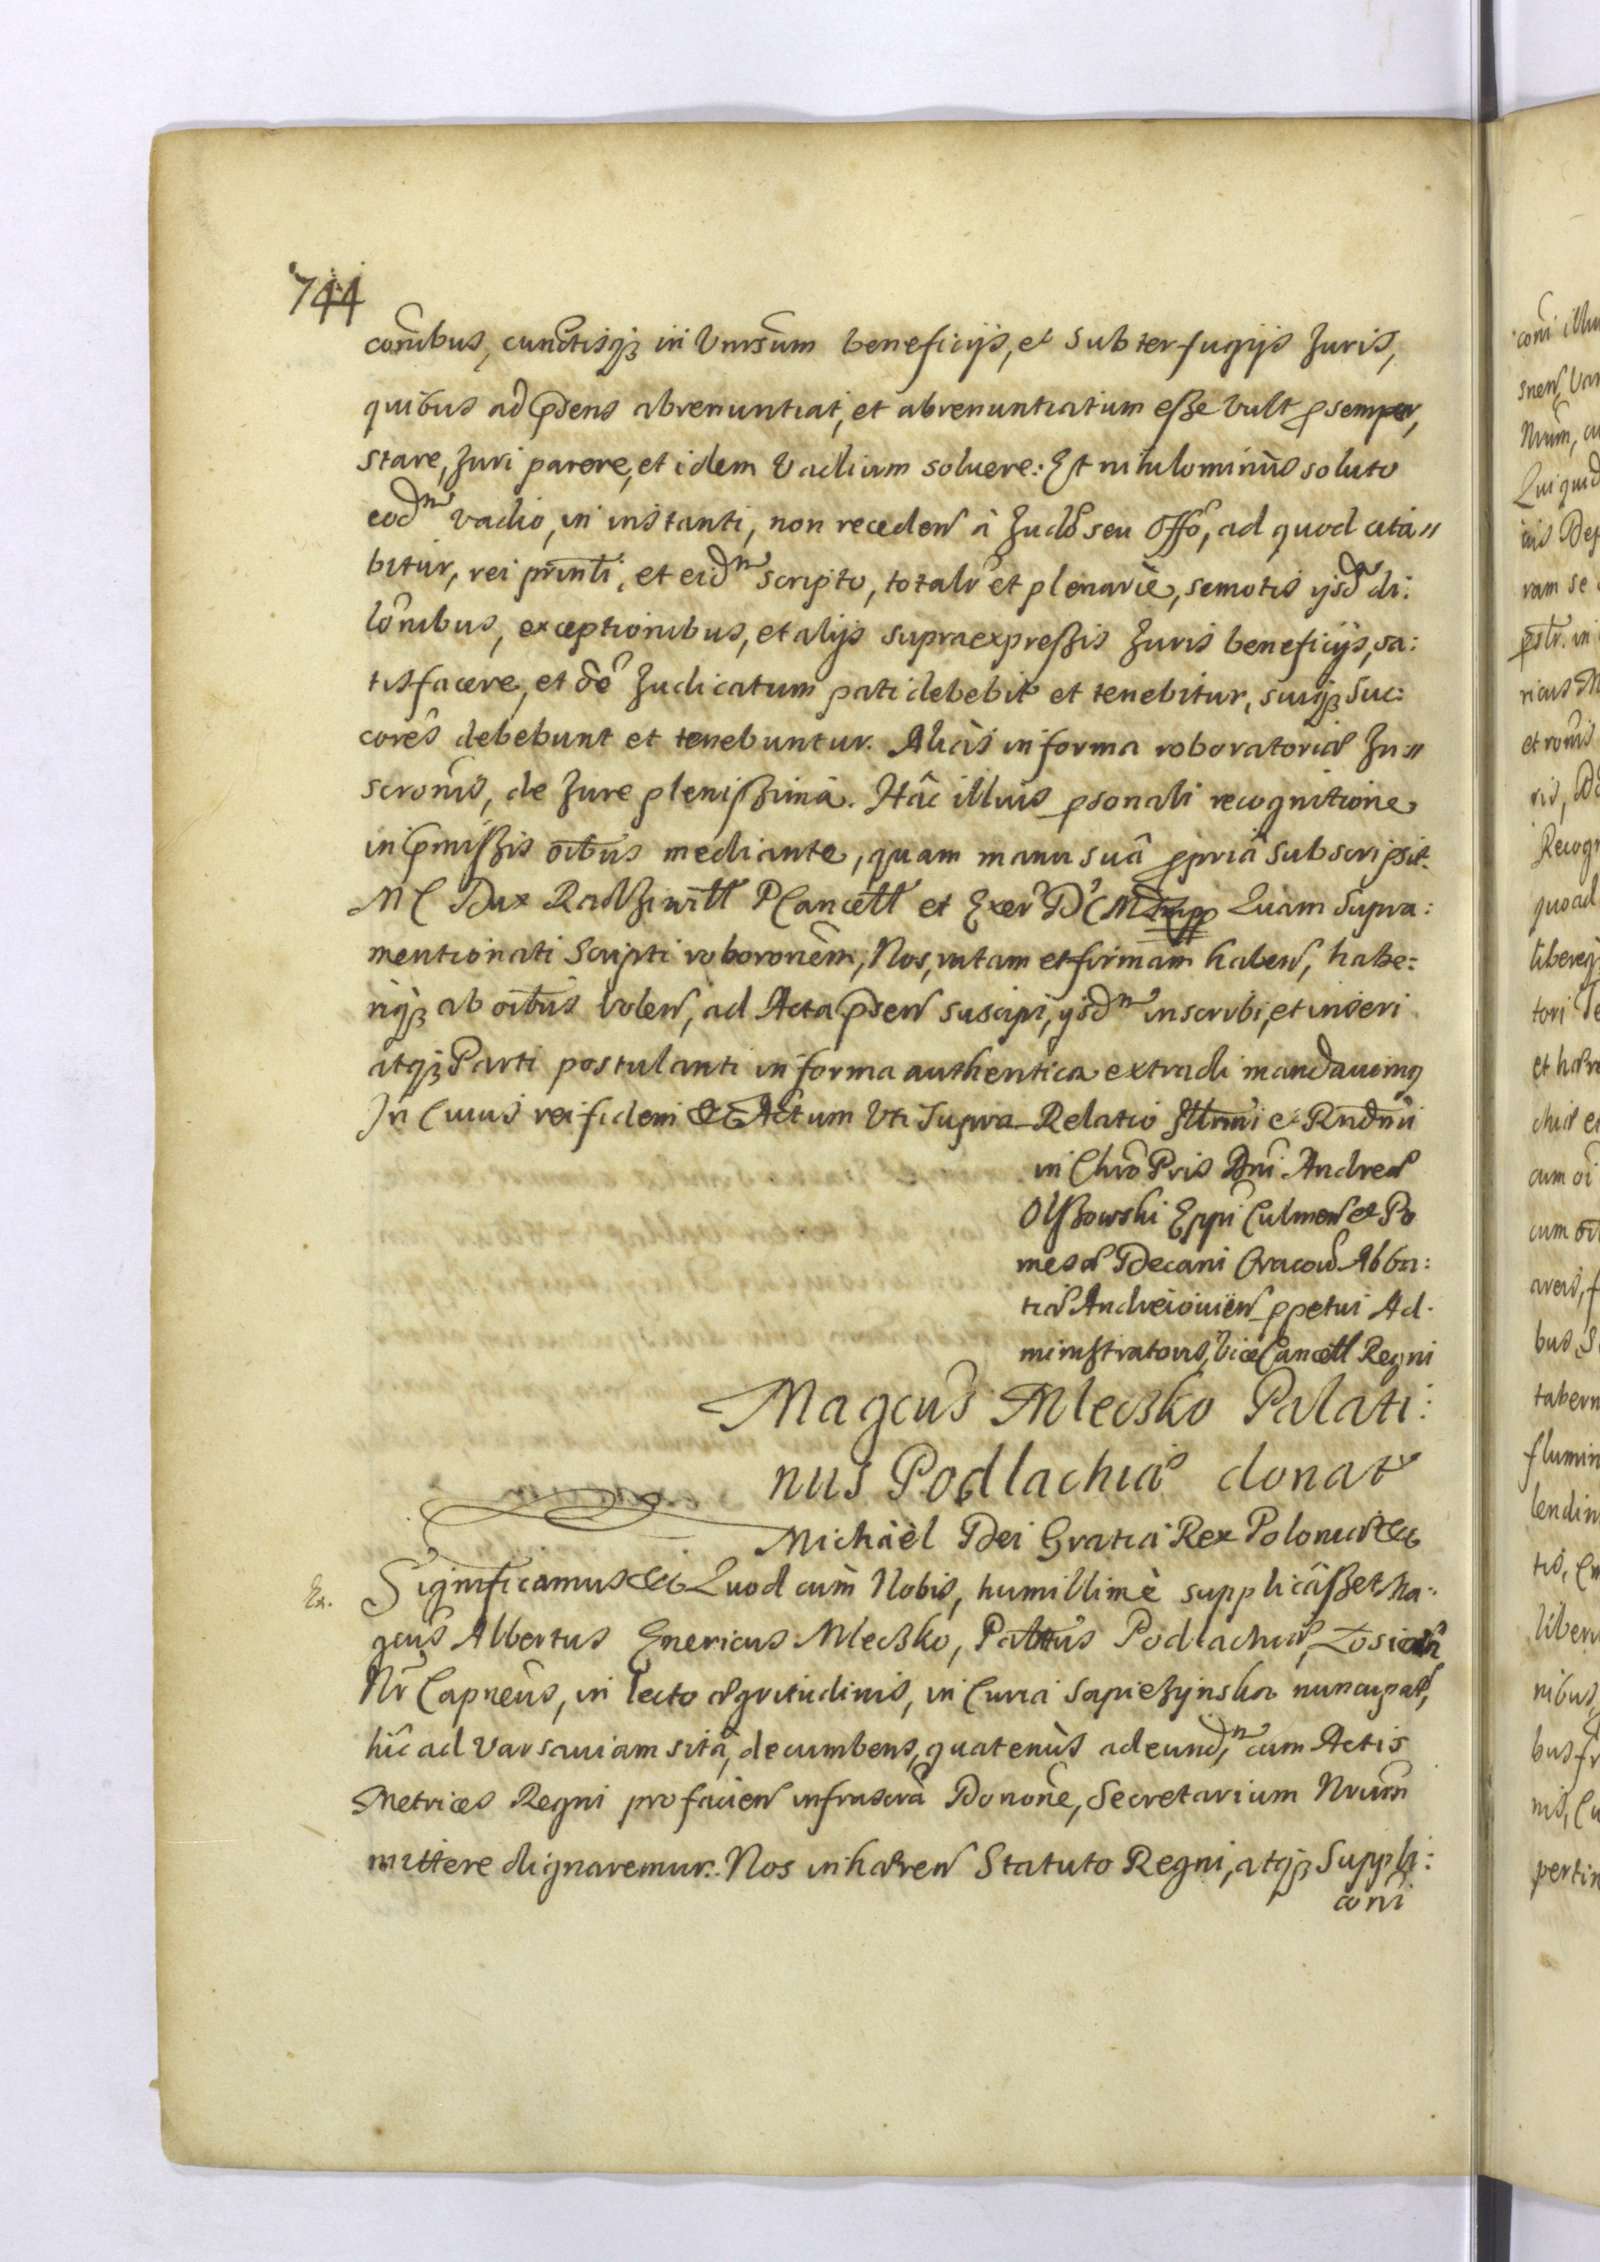 744
cônibus, cunctisq3 in Vnrsum beneficijs, et subterfugijs Juris,
quibus ad pñdens abrenuntiat, et abrenuntiatum esse vult p semper,
stare, Juri parere, et idem Vadium soluere: Et nihilominus soluto
eodm vadio, in instanti, non receden à Judô seu Offô, ad quod cita"
bitur, rei prinlî, et eidm scripto, totalr et plenariè, semotis ijsd di:
lônibus, exceptionibus, et alijs supraexpressis Juris beneficijs, sa:
tisfacere, et dê Judicatum pati debebit et tenebitur, suiq3 Suc:
corês debebunt et tenebuntur. Aliàs in forma roboratoriæ In"
scrônis, de Jure plenissimâ. Hâc illius psonali recognitione
in pmissis oîbus mediante, quam manu suâ ppriâ subscripsit.
M C Dux Radziwill PCancell et Exer D C M Lmpp Quam supra:
mentionati Scripti roboronem, Nos, ratam et firmam haben, habe:
riq3 ab oîbus volen, ad Acta pñden suscipi, ijsdm inscribi, et inseri
atq3 Parti postulanti in forma authentica extradi mandauimus
In Cuius rei fidem &c Actum Vti Supra Relatio Illrmi et Rndmi
in Chrô Pris Dni Andreæ
Olszowski Eppi Culmen et Po
mesa Decani Cracow Abba:
tiæ Andreiouien ppetui Ad.
ministratoris, Vice Cancell Regni
Magcus Mleczko Palati:
nus Podlachiæ donat
Michaèl Dei Gratiâ Rex Poloniæ &c
Ex. Significamus &c Quod cùm Nobis, humillimè supplicâsset Ma:
gcus Albertus Emericus Mleczko, Palttus Podlachiæ, Losicen
Nr Capneus, in lecto ægritudinis, in Curia Sapiezynska nuncupat,
hîc ad Varsauiam sitâ, decumbens, quatenùs ad eundm cum Actis
Metrices Regni pro facien infrascrâ Donône, Secretarium Nrum
mittere dignaremur. Nos inhæren Statuto Regni, atq3 Suppli:
coni